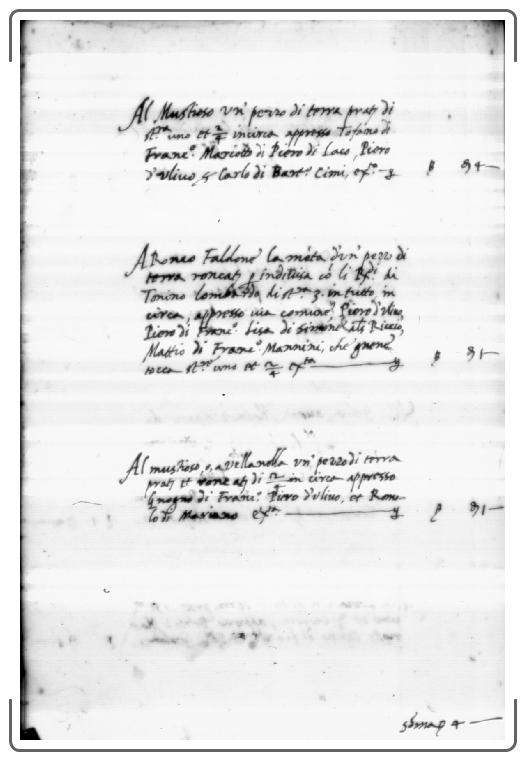 Al Mustioso un' pezzo di terra prat. di
st.ra uno et 2/4 incirca appresso Tofano di
Franc.o Mariotto di Piero di Laco, Piero
d'Vlivo, et Carlo di Bart.o Cimi, ex.to
A Ronco Faldone la metà d'un' pezzo di
terra roncat. p indivisa cò li di
Tonino lombardo, di st.ra 3. in tutto, in
circa, appresso via comune, Piero d'Vlivo,
Piero di Franc.o lisa di Simone als Riccio,
Mattio di Franc.o Mannini, che gnene
tocca st.ra uno et 2/4 ex.ta
Al mustioso, o, avellanella un' pezzo di terra
prat. et roncat. di 2/4 in circa appresso
di Franc.o Piero d'Vlivo, et Romo
lo di Mariano ex.ta
sõma p 4